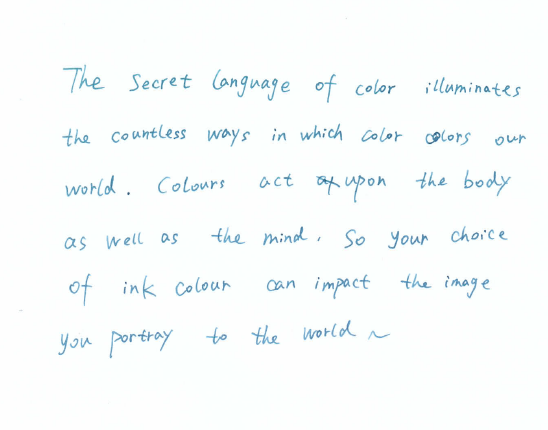 The Secret language of color illuminates
the countless ways in which color colors our
world. Colours act upon the body
as well as the mind. So your choice
of ink colour can impact the image
you portray to the world ~